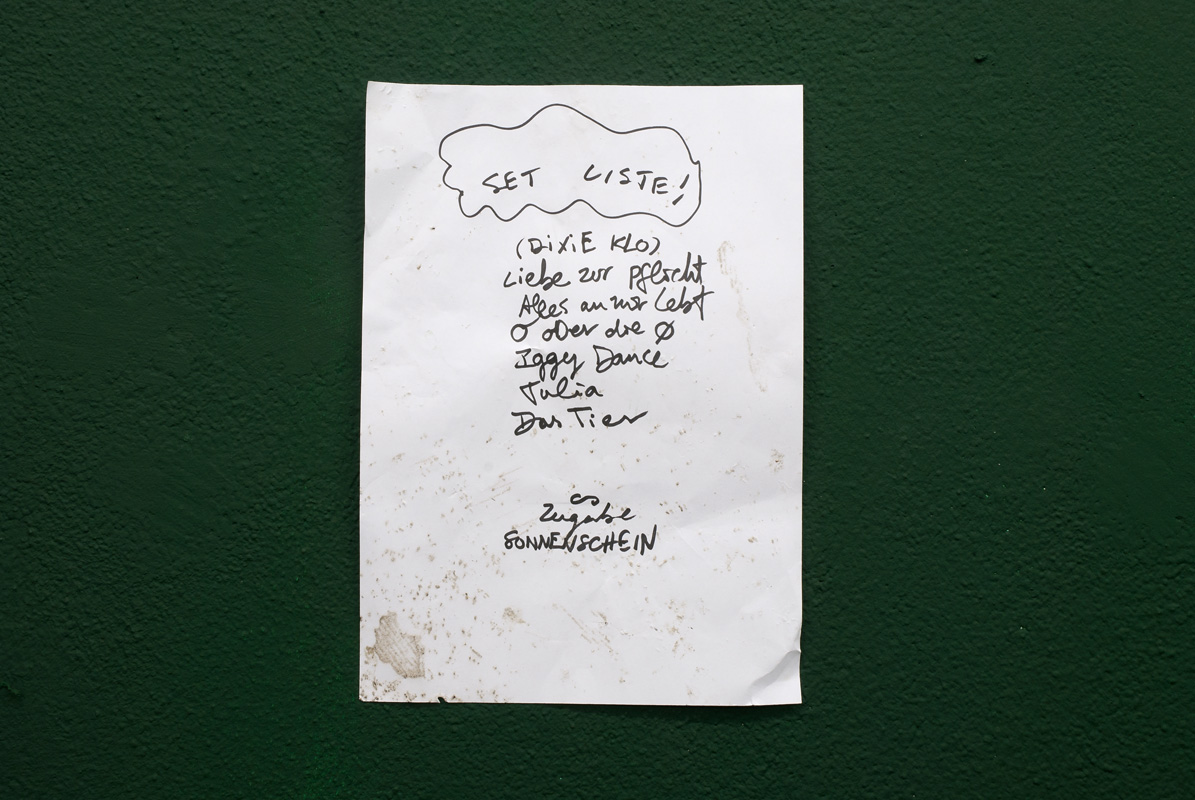 SET LISTE!
(DIXIE KLO)
Liebe zur Pflicht
Alles an mir lebt
O oder die Ø
Iggy Dance
Julia
Das Tier
∞
Zugabe
SONNENSCHEIN